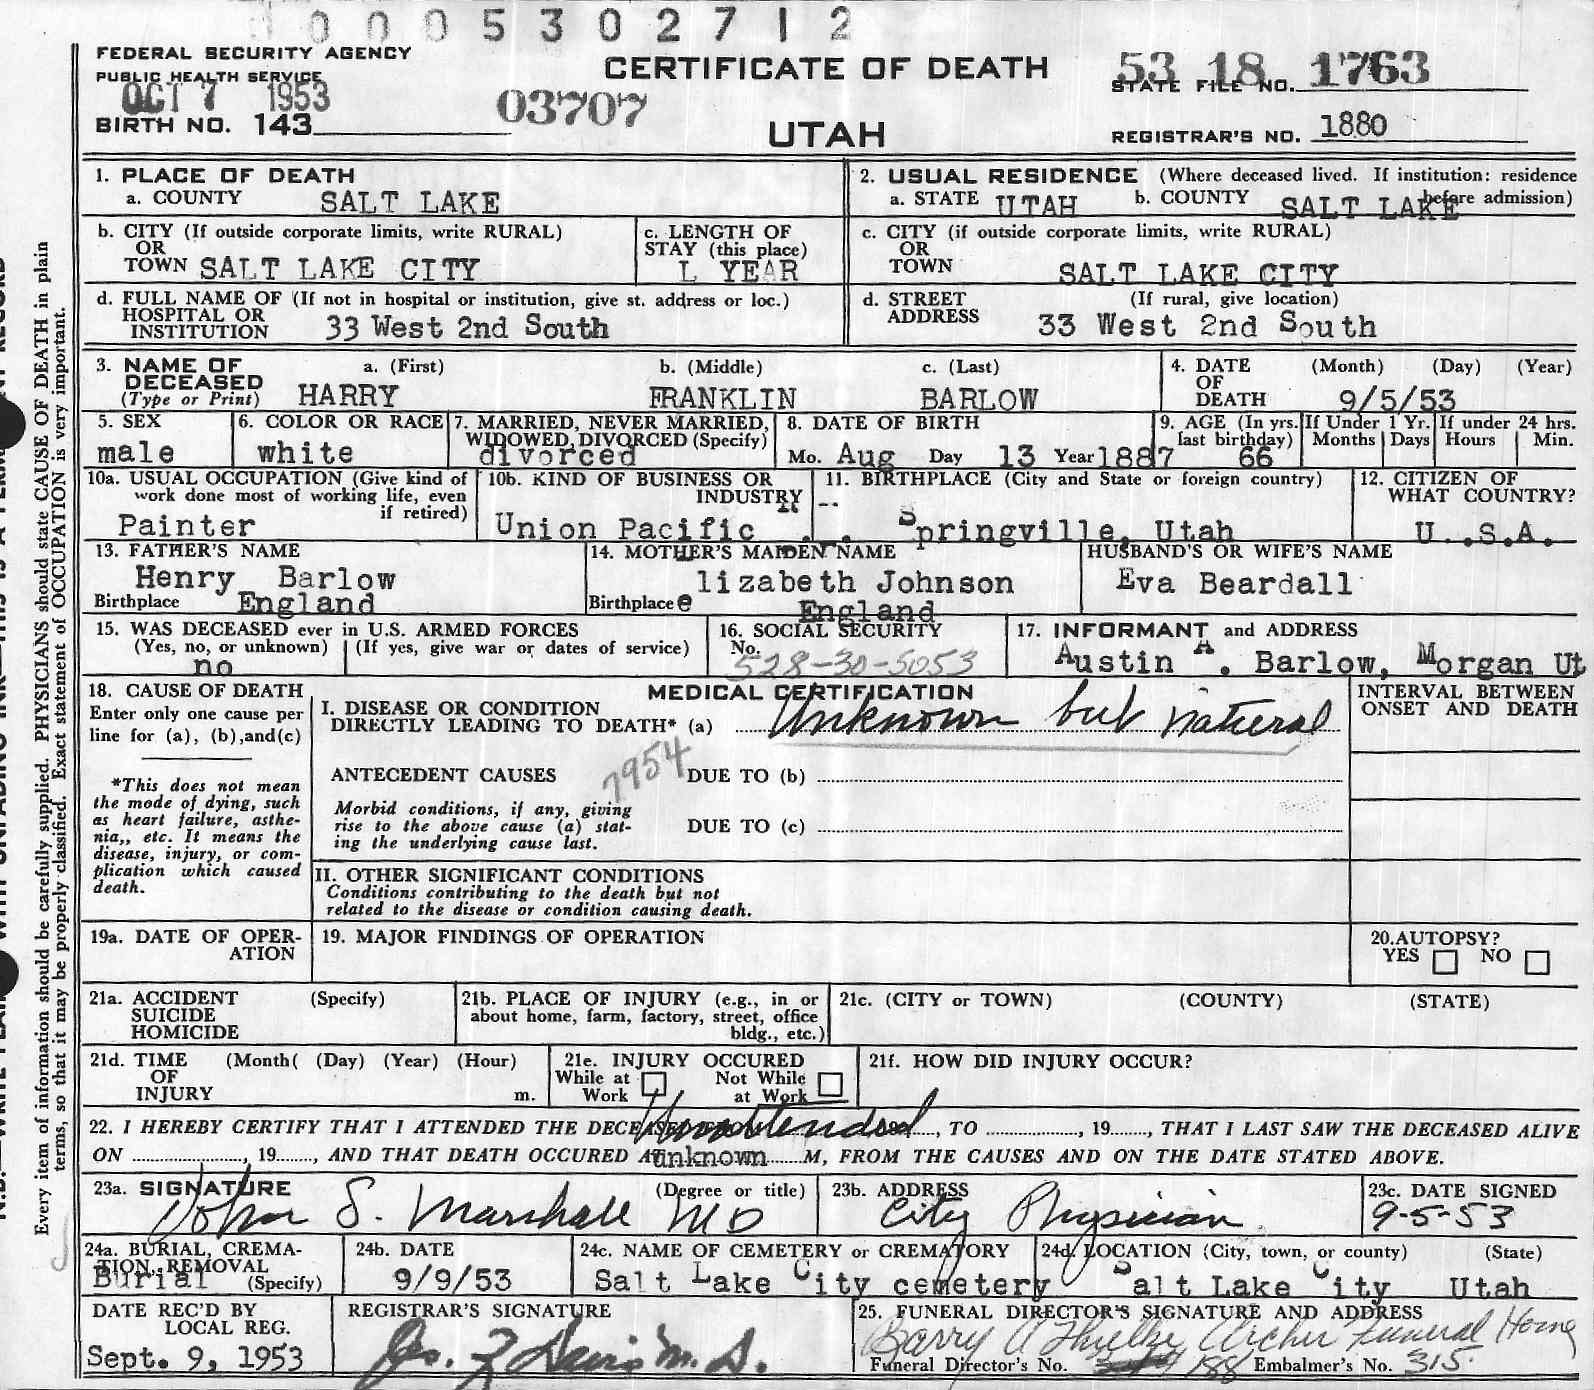 0005302712
FEDERAL SECURITY AGENCY
PUBLIC HEALTH SERVICE
OCT 7 1953
BIRTH NO. 143
03707
CERTIFICATE OF DEATH
UTAH
53 18 1763
STATE FILE NO.
REGISTRAR'S NO. 1880
1. PLACE OF DEATH
a. COUNTY SALT LAKE
2. USUAL RESIDENCE (Where deceased lived. If institution: residence before admission)
a. STATE UTAH b. COUNTY SALT LAKE
b. CITY (If outside corporate limits, write RURAL)
OR
TOWN SALT LAKE CITY
c. LENGTH OF
STAY (this place)
L YEAR
c. CITY (if outside corporate limits, write RURAL)
OR
TOWN SALT LAKE CITY
d. FULL NAME OF (If not in hospital or institution, give st. address or loc.)
HOSPITAL OR
INSTITUTION 33 West 2nd South
d. STREET (If rural, give location)
ADDRESS 33 West 2nd South
3. NAME OF a. (First) b. (Middle) c. (Last)
DECEASED
(Type or Print) HARRY FRANKLIN BARLOW
4. DATE (Month) (Day) (Year)
OF
DEATH 9/5/53
5. SEX
male
6. COLOR OR RACE
white
7. MARRIED, NEVER MARRIED,
WIDOWED, DIVORCED (Specify)
divorced
8. DATE OF BIRTH
Mo. Aug Day 13 Year 1887
9. AGE (In yrs.
last birthday)
66
If Under 1 Yr.
Months Days
If under 24 hrs.
Hours Min.
10a. USUAL OCCUPATION (Give kind of
work done most of working life, even
if retired)
Painter
10b. KIND OF BUSINESS OR
INDUSTRY
Union Pacific R. R.
11. BIRTHPLACE (City and State or foreign country)
Springville, Utah
12. CITIZEN OF
WHAT COUNTRY?
U. S.A.
13. FATHER'S NAME
Henry Barlow
Birthplace England
14. MOTHER'S MAIDEN NAME
Elizabeth Johnson
Birthplace England
HUSBAND'S OR WIFE'S NAME
Eva Beardall
15. WAS DECEASED ever in U.S. ARMED FORCES
(Yes, no, or unknown) (If yes, give war or dates of service)
no
16. SOCIAL SECURITY
No. 528-30-5053
17. INFORMANT and ADDRESS
Austin A. Barlow, Morgan Ut
18. CAUSE OF DEATH
Enter only one cause per
line for (a), (b), and (c)
*This does not mean
the mode of dying, such
as heart failure, asthe-
nia,, etc. It means the
disease, injury, or com-
plication which caused
death.
MEDICAL CERTIFICATION
I. DISEASE OR CONDITION
DIRECTLY LEADING TO DEATH* (a) Unknown but natural
7954
ANTECEDENT CAUSES DUE TO (b)
Morbid conditions, if any, giving
rise to the above cause (a) stat-
ing the underlying cause last.
DUE TO (c)
II. OTHER SIGNIFICANT CONDITIONS
Conditions contributing to the death but not
related to the disease or condition causing death.
INTERVAL BETWEEN
ONSET AND DEATH
19a. DATE OF OPER-
ATION
19. MAJOR FINDINGS OF OPERATION
20. AUTOPSY?
YES NO
21a. ACCIDENT (Specify)
SUICIDE
HOMICIDE
21b. PLACE OF INJURY (e.g., in or
about home, farm, factory, street, office
bldg., etc.)
21c. (CITY or TOWN) (COUNTY) (STATE)
21d. TIME (Month( (Day) (Year) (Hour)
OF
INJURY m.
21e. INJURY OCCURED
While at Work Not While at Work
21f. HOW DID INJURY OCCUR?
22. I HEREBY CERTIFY THAT I ATTENDED THE DECEASED Unattended, TO , 19 , THAT I LAST SAW THE DECEASED ALIVE
ON , 19 , AND THAT DEATH OCCURED AT unknown M, FROM THE CAUSES AND ON THE DATE STATED ABOVE.
23a. SIGNATURE (Degree or title)
John S. Marshall MD
23b. ADDRESS
City Physician
23c. DATE SIGNED
9-5-53
24a. BURIAL, CREMA-
TION, REMOVAL
Burial (Specify)
24b. DATE
9/9/53
24c. NAME OF CEMETERY or CREMATORY
Salt Lake City cemetery
24d. LOCATION (City, town, or county) (State)
Salt Lake City Utah
DATE REC'D BY
LOCAL REG.
Sept. 9, 1953
REGISTRAR'S SIGNATURE
M.D.
25. FUNERAL DIRECTOR'S SIGNATURE AND ADDRESS
Funeral Home
Funeral Director's No. 188 Embalmer's No. 315
Every item of information should be carefully supplied. PHYSICIANS should state CAUSE OF DEATH in plain
terms, so that it may be properly classified. Exact statement of OCCUPATION is very important.